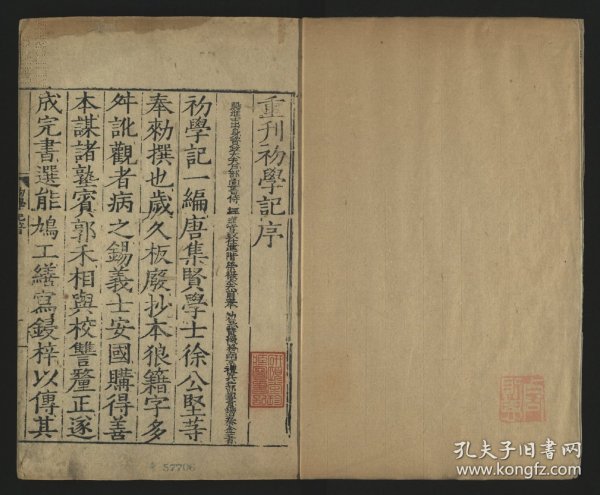 重刊初學記序
初學記一編唐集賢學士徐公堅䓁
奉勑撰也歲久板廢抄本狼籍字多
舛訛觀者病之錫義士安國購得善
本謀諸塾賓郭禾相與校讐釐正遂
成完書選能鳩工繕寫鋟梓以傳其
57706
孔夫子旧书网
www.kongfz.com